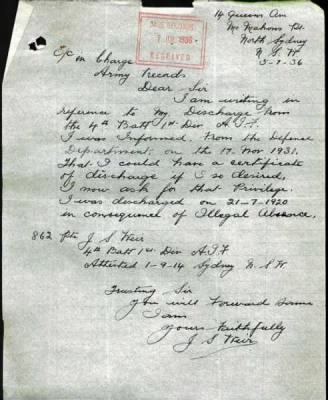 14 Queens Av
Mc Mahons Pt
North Sydney
N. S. W
5-7-36
BASE RECORDS
7 1936
RECEIVED
Charge
Army Records
Dear Sir
I am writing in
reference to My Discharge from
the 4th Batt 1st Div A.I.F
I was Informed From the Defence
Department on the 17. Nov 1931.
That I could have a certificate
of discharge if I so desired,
I now ask for that Privilege.
I was discharged on 21-7-1920
in consequence of Illegal Absence.
862 Pte J. S Weir
4th Batt 1st Div A.I.F
Attested 1-9-14 Sydney N. S. W.
Trusting Sir
you will Forward Same
I am
Yours Faithfully
J S Weir